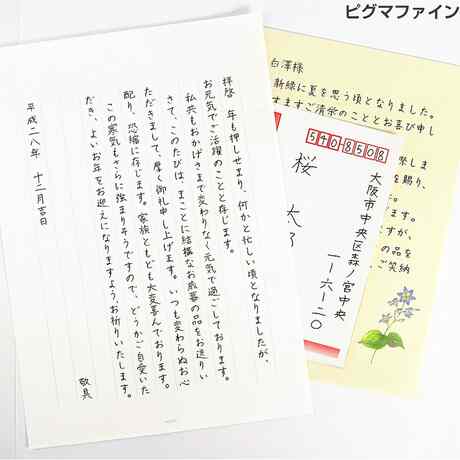 ピグマファイン
拝啓　年も押しせまり、何かと忙しい頃となりましたが、
お元気でご活躍のことと存じます。
私共もおかげさまで変わりなく元気で過ごしております。
さて、このたびは、まことに結構なお歳暮の品をお送りい
ただきまして、厚く御礼申し上げます。いつも変わらぬお心
配り、恐縮に存じます。家族ともども大変喜んでおります。
この寒気もさらに強まりそうですので、どうかご自愛いた
だき、よいお年をお迎えになりますよう、お祈りいたします。
敬具
平成二八年　十二月吉日
540-8508
大阪市中央区森ノ宮中央
一-六-二〇
桜　太
白澤様
新緑に夏を思う頃となりました。
すますご清栄のこととお喜び申し
を賜り、
た。
ます。
すが、
の品を
ご笑納